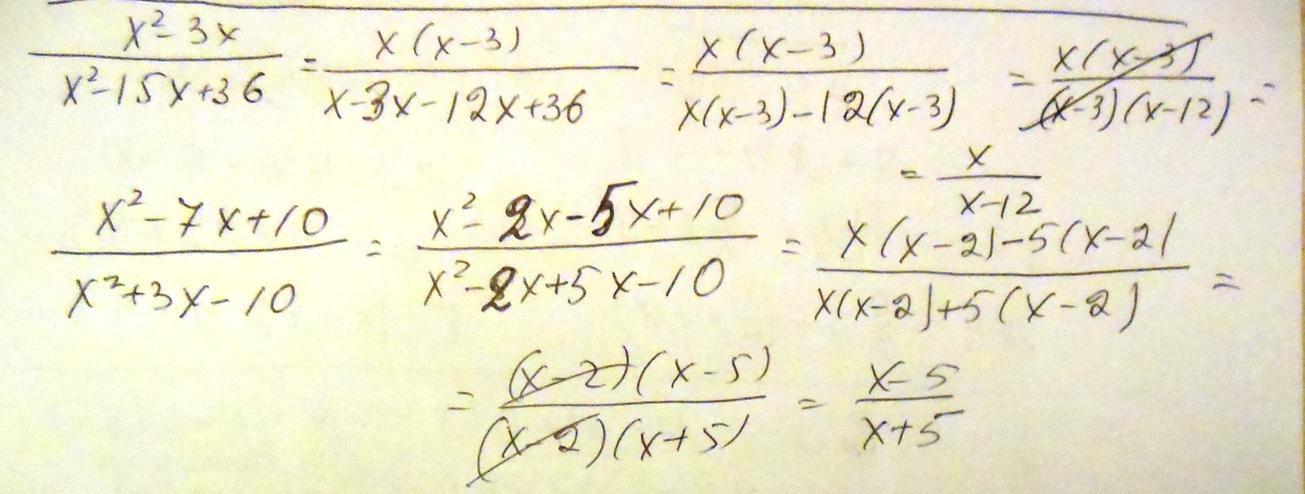 x²-3x / x²-15x+36 = x(x-3) / x-3x-12x+36 = x(x-3) / x(x-3)-12(x-3) = x(x-3) / (x-3)(x-12) =
= x / x-12
x²-7x+10 / x²+3x-10 = x²-2x-5x+10 / x²-2x+5x-10 = x(x-2)-5(x-2) / x(x-2)+5(x-2) =
= (x-2)(x-5) / (x-2)(x+5) = x-5 / x+5